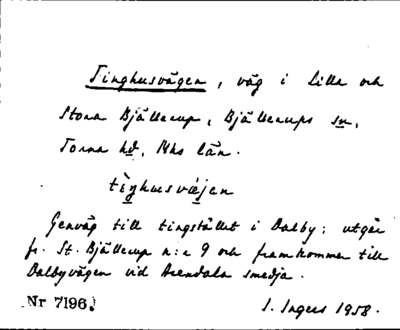 Tinghusvägen, väg i Lilla och
Stora Bjällerup, Bjällerups sn,
Torna hd, Mhs län.
tèŋhusvä̀jen
Genväg till tingstället i Dalby; utgår
fr. St. Bjällerup n:o 9 och framkommer till
Dalbyvägen vid Arendala smedja.
Nr 7196. I. Ingers 1958.